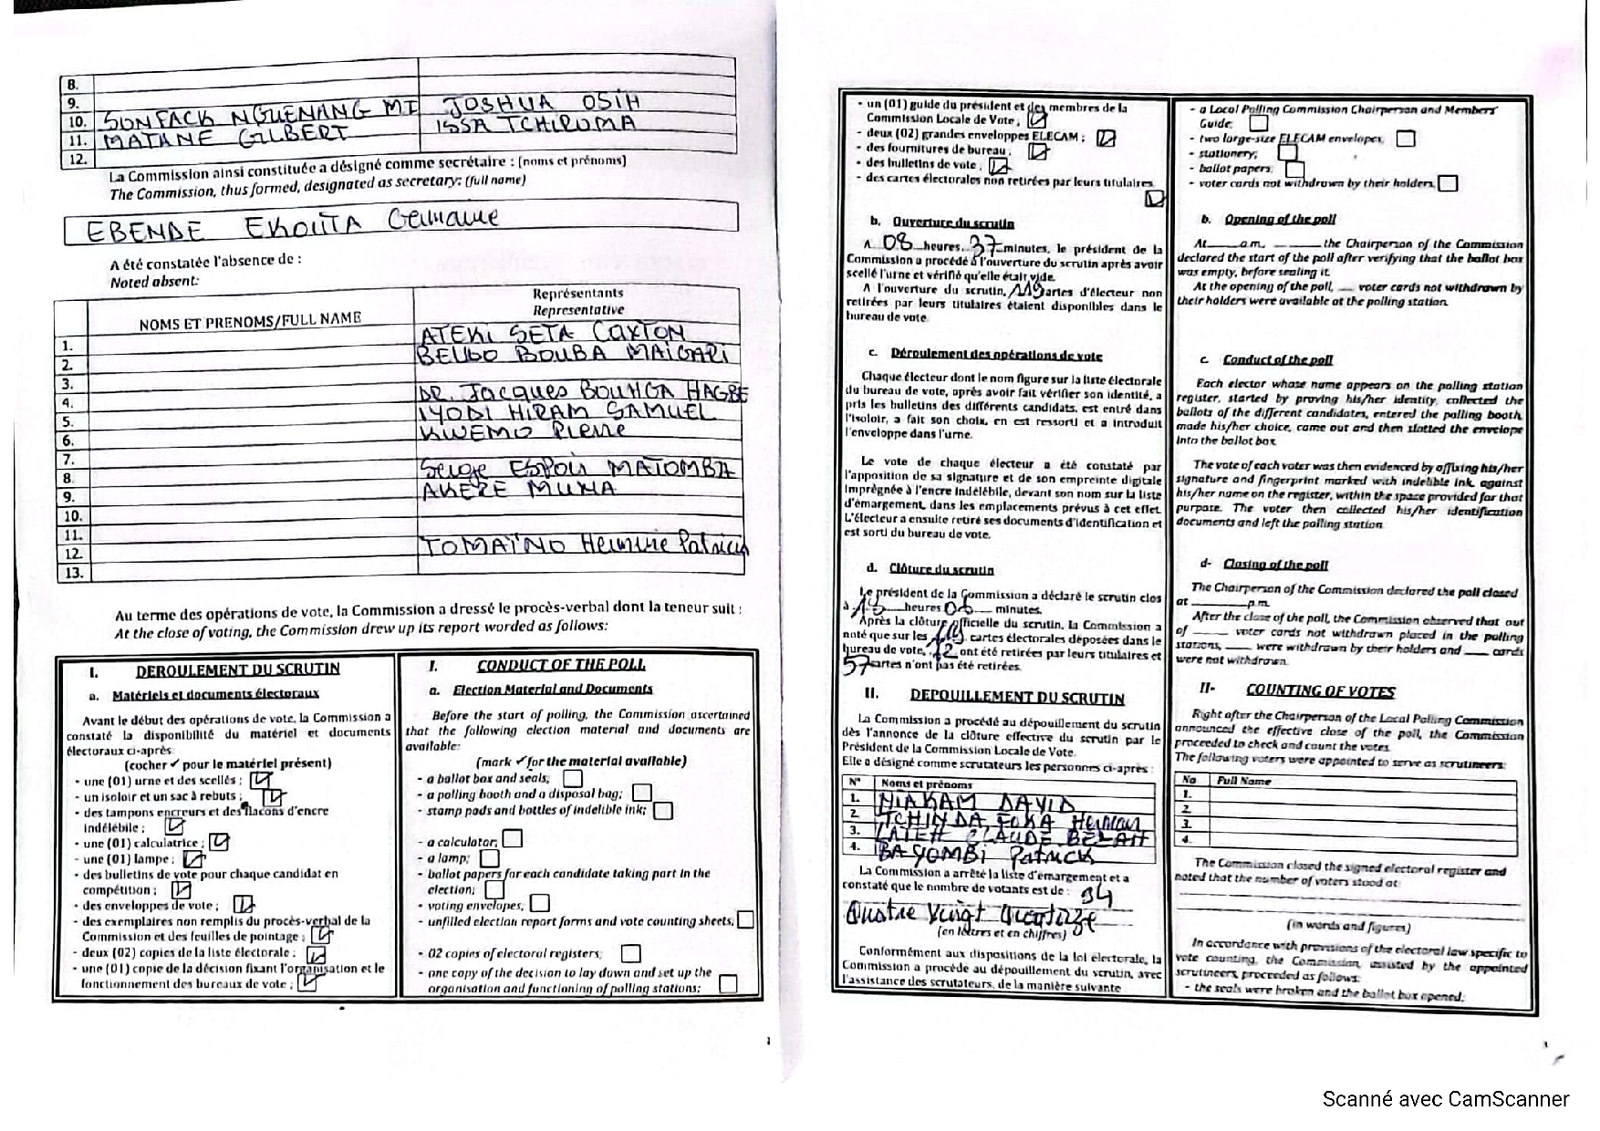 8.
9.
10. SONFACK NGUENANG MI JOSHUA OSIH
11. MATANE GILBERT ISSA TCHIROMA
12.
La Commission ainsi constituée a désigné comme secrétaire : (noms et prénoms)
The Commission, thus formed, designated as secretary: (full name)
EBENDE EKOUTA Germaine
A été constatée l'absence de :
Noted absent:
NOMS ET PRENOMS/FULL NAME
Représentants
Representative
1. ATEKI SETA CAXTON
2. BELLO BOUBA MAIGARI
3.
4. DR. Jacques BOUHGA HAGBE
5. IYODI HIRAM SAMUEL
6. KWEMO Pierre
7.
8. Serge ESPOIR MATOMBA
9. AKERE MUNA
10.
11.
12. TOMAÏNO Hermine Patricia
13.
Au terme des opérations de vote, la Commission a dressé le procès-verbal dont la teneur suit :
At the close of voting, the Commission drew up its report worded as follows:
I. DEROULEMENT DU SCRUTIN
a. Matériels et documents électoraux
Avant le début des opérations de vote, la Commission a
constaté la disponibilité du matériel et documents
électoraux ci-après
(cocher ✓ pour le matériel présent)
- une (01) urne et des scellés ;
- un isoloir et un sac à rebuts ;
- des tampons encreurs et des flacons d'encre
indélébile ;
- une (01) calculatrice ;
- une (01) lampe ;
- des bulletins de vote pour chaque candidat en
compétition ;
- des enveloppes de vote ;
- des exemplaires non remplis du procès-verbal de la
Commission et des feuilles de pointage ;
- deux (02) copies de la liste électorale ;
- une (01) copie de la décision fixant l'organisation et le
fonctionnement des bureaux de vote ;
I. CONDUCT OF THE POLL
a. Election Material and Documents
Before the start of polling, the Commission ascertained
that the following election material and documents are
available:
(mark ✓ for the material available)
- a ballot box and seals;
- a polling booth and a disposal bag;
- stamp pads and bottles of indelible ink;
- a calculator;
- a lamp;
- ballot papers for each candidate taking part in the
election;
- voting envelopes;
- unfilled election report forms and vote counting sheets;
- 02 copies of electoral registers;
- one copy of the decision to lay down and set up the
organisation and functioning of polling stations;
- un (01) guide du président et des membres de la
Commission Locale de Vote ;
- deux (02) grandes enveloppes ELECAM ;
- des fournitures de bureau ;
- des bulletins de vote ;
- des cartes électorales non retirées par leurs titulaires
b. Ouverture du scrutin
A 08 heures, 37 minutes, le président de la
Commission a procédé à l'ouverture du scrutin après avoir
scellé l'urne et vérifié qu'elle était vide.
A l'ouverture du scrutin, 119 cartes d'électeur non
retirées par leurs titulaires étaient disponibles dans le
bureau de vote.
c. Déroulement des opérations de vote
Chaque électeur dont le nom figure sur la liste électorale
du bureau de vote, après avoir fait vérifier son identité, a
pris les bulletins des différents candidats, est entré dans
l'isoloir, a fait son choix, en est ressorti et a introduit
l'enveloppe dans l'urne.
Le vote de chaque électeur a été constaté par
l'apposition de sa signature et de son empreinte digitale
imprégnée à l'encre indélébile, devant son nom sur la liste
d'émargement, dans les emplacements prévus à cet effet.
L'électeur a ensuite retiré ses documents d'identification et
est sorti du bureau de vote.
d. Clôture du scrutin
Le président de la Commission a déclaré le scrutin clos
à heures minutes.
Après la clôture officielle du scrutin, la Commission a
noté que sur les cartes électorales déposées dans le
bureau de vote, ont été retirées par leurs titulaires et
57 cartes n'ont pas été retirées.
II. DEPOUILLEMENT DU SCRUTIN
La Commission a procédé au dépouillement du scrutin
dès l'annonce de la clôture effective du scrutin par le
Président de la Commission Locale de Vote.
Elle a désigné comme scrutateurs les personnes ci-après :
N° Noms et prénoms
1. NIAKAM DAVID
2. TCHINDA FOKA Herman
3. CLAUDE
4. BAYOMBI Patrick
La Commission a arrêté la liste d'émargement et a
constaté que le nombre de votants est de : 94
Quatre Vingt Quatorze
(en lettres et en chiffres)
Conformément aux dispositions de la loi électorale, la
Commission a procédé au dépouillement du scrutin, avec
l'assistance des scrutateurs, de la manière suivante
- a Local Polling Commission Chairperson and Members'
Guide;
- two large-size ELECAM envelopes;
- stationery;
- ballot papers;
- voter cards not withdrawn by their holders;
b. Opening of the poll
At____a.m, ____ the Chairperson of the Commission
declared the start of the poll after verifying that the ballot box
was empty, before sealing it.
At the opening of the poll, __ voter cards not withdrawn by
their holders were available at the polling station.
c. Conduct of the poll
Each elector whose name appears on the polling station
register, started by proving his/her identity, collected the
ballots of the different candidates, entered the polling booth,
made his/her choice, came out and then slotted the envelope
into the ballot box.
The vote of each voter was then evidenced by affixing his/her
signature and fingerprint marked with indelible ink, against
his/her name on the register, within the space provided for that
purpose. The voter then collected his/her identification
documents and left the polling station.
d- Closing of the poll
The Chairperson of the Commission declared the poll closed
at ________p.m.
After the close of the poll, the Commission observed that out
of _____ voter cards not withdrawn placed in the polling
stations, ____ were withdrawn by their holders and ____ cards
were not withdrawn.
II- COUNTING OF VOTES
Right after the Chairperson of the Local Polling Commission
announced the effective close of the poll, the Commission
proceeded to check and count the votes.
The following voters were appointed to serve as scrutineers:
No Full Name
1.
2.
3.
4.
The Commission closed the signed electoral register and
noted that the number of voters stood at:
(in words and figures)
In accordance with provisions of the electoral law specific to
vote counting, the Commission, assisted by the appointed
scrutineers, proceeded as follows:
- the seals were broken and the ballot box opened;
Scanné avec CamScanner